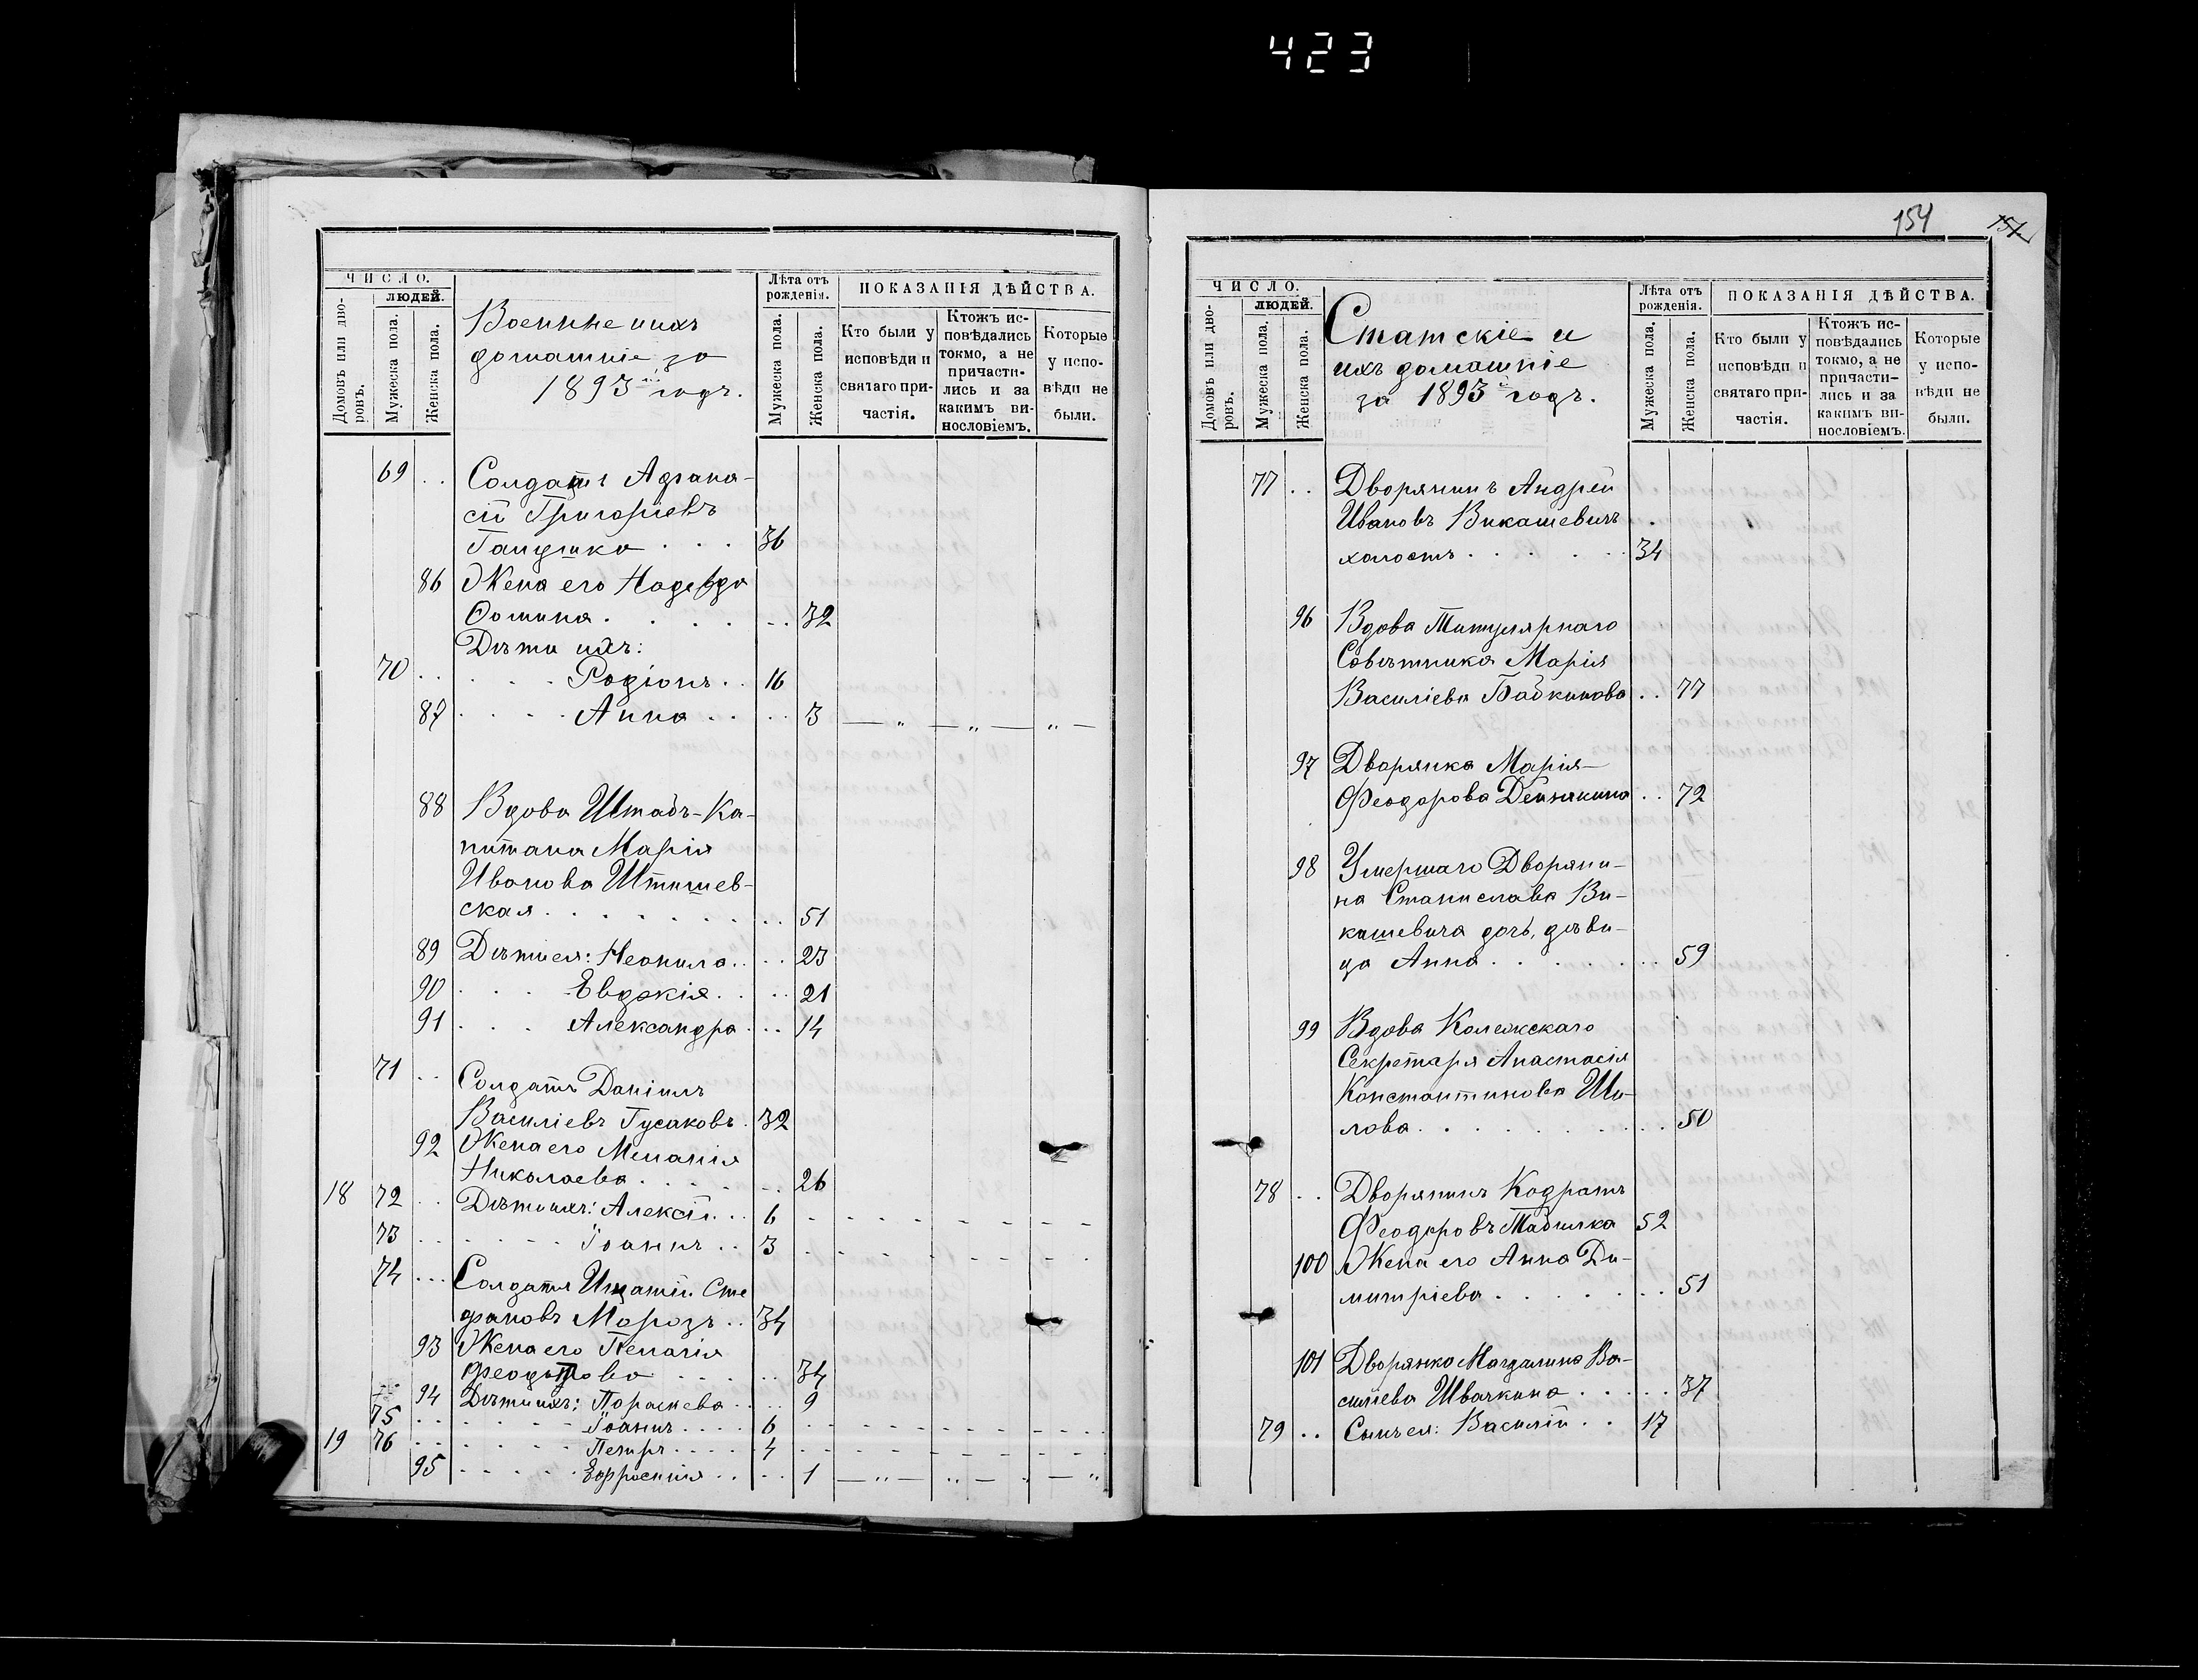 423
ЧИСЛО.
Домовъ или дворовъ.
ЛЮДЕЙ.
Мужеска пола.
Женска пола.
Военные ихъ
домашніе за
1893й годъ.
Лѣта отъ
рожденія.
Мужеска пола.
Женска пола.
ПОКАЗАНІЯ ДѢЙСТВА.
Кто были у
исповѣди и
святаго при-
частія.
Ктожъ ис-
повѣдались
токмо, а не
причасти-
лись и за
какимъ ви-
нословіемъ.
Которые
у испо-
вѣди не
были.
69 . . Солдатъ Афана-
сій Григоріевъ
36
86 Жена его Надежда
Ѳомина . . . . . . 32
Дѣти ихъ:
70 . . . . . Родіонъ . . 16
87 . . . . Анна . . . . 3 — „ — „ — „ —
88 Вдова Штабъ-Ка-
питана Марія
Иванова
ская . . . . . . . . 51
89 Дѣти ея: Неонила . . . . 23
90 . . . Евдокія . . . . 21
91 . . . Александра . . . 14
71 . . Солдатъ Даніилъ
Василіевъ Гусаковъ . 32
92 Жена его Меланія
Николаева . . . . . . 26
18 72 . . Дѣти ихъ: Алексѣй . . . 6
73 . . . . . . . Іоаннъ . . 3
74 . . . Солдатъ Игнатій Сте
фановъ Морозъ . . 34
93 Жена его Пелагія
. . . . 34
94 Дѣти ихъ: Параскева . . . 9
75 . . . . . . Іоаннъ . . . . 6
19 76 . . . . . . Петръ . . . . 4
95 . . . . . Евфросинія . . . . 1 — „ — „ — . — „
154
ЧИСЛО.
Домовъ или дворовъ.
ЛЮДЕЙ.
Мужеска пола.
Женска пола.
Статскіе и
ихъ домашніе
за 1893й годъ.
Лѣта отъ
рожденія.
Мужеска пола.
Женска пола.
ПОКАЗАНІЯ ДѢЙСТВА.
Кто были у
исповѣди и
святаго при-
частія.
Ктожъ ис-
повѣдались
токмо, а не
причасти-
лись и за
какимъ ви-
нословіемъ.
Которые
у испо-
вѣди не
были.
77 . . Дворянинъ Андрей
Ивановъ Викашевичъ
холостъ . . . . . 34
96 Вдова Титулярнаго
Совѣтника Марія
Василіева Бабкинова . . 77
97 Дворянка Марія
Феодорова . . 72
98 Умершаго Дворяни-
на Станислава Ви-
кашевича дочь, дѣви-
ца Анна . . . . . . . 59
99 Вдова Колежскаго
Секретаря Анастасія
Константинова Ши-
лова . . . . . . . . . 50
78 . . Дворянинъ Кодратъ
Феодоровъ 52
100 Жена его Анна Ди-
митріева . . . . . . . 51
101 Дворянка Магдалина Ва-
силіева Швачкина . . . . . 37
79 . . Сынъ ея: Василій . . 17